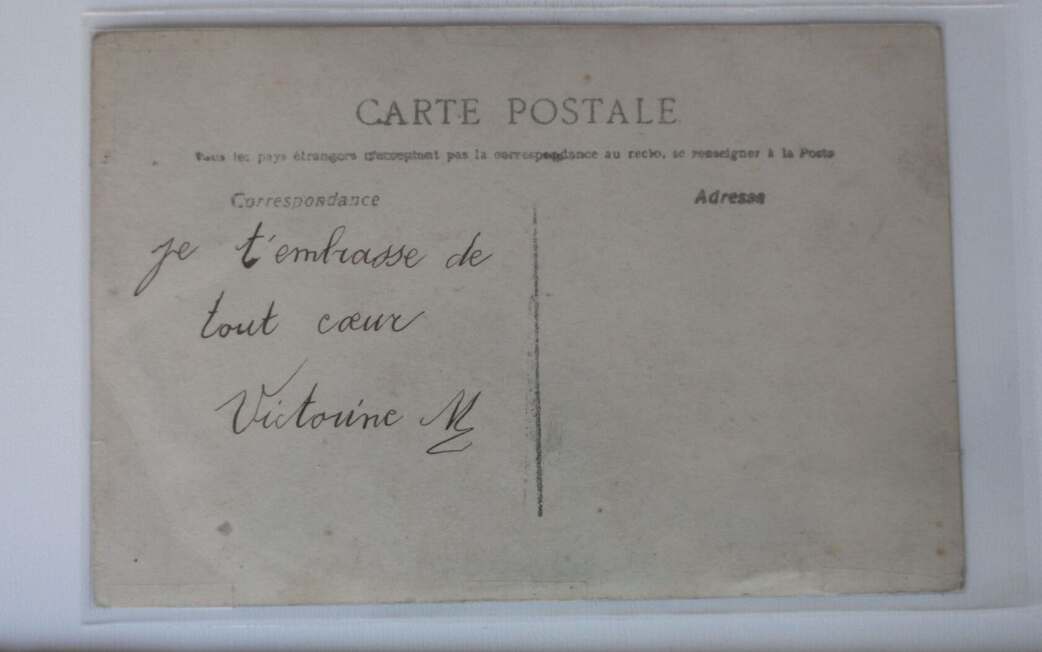 CARTE POSTALE
Tous les pays étrangers n'acceptant pas la correspondance au recto, se renseigner à la Poste
Correspondance
Adresse
je t'embrasse de
tout cœur
Victorine M